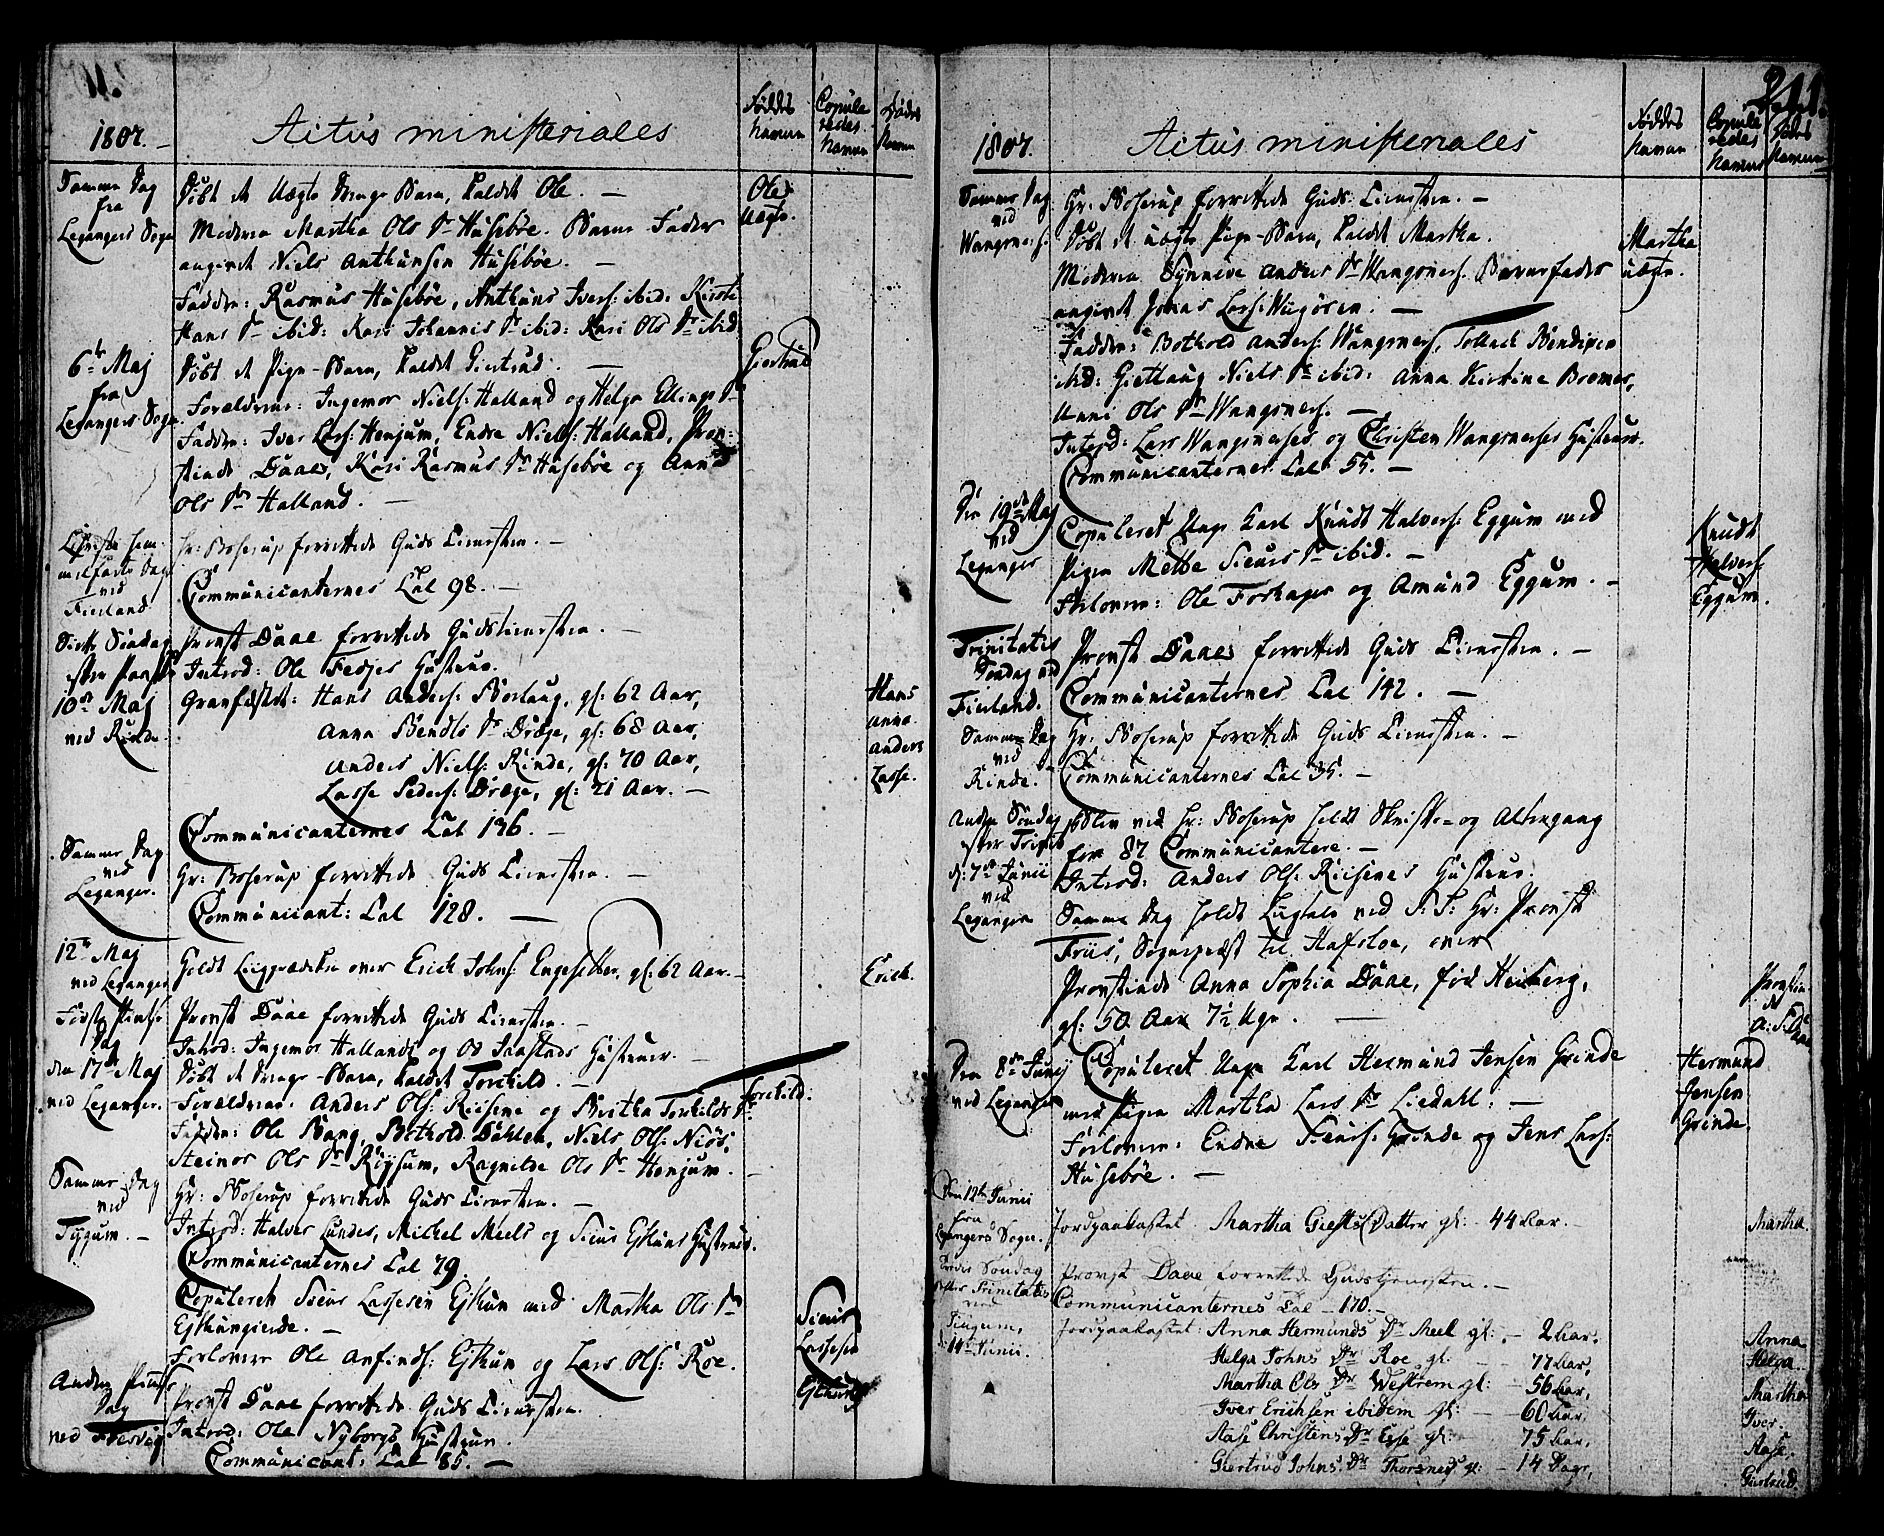 1807.
Actus ministeriales
Føddes Navne
Copuleredes Navne
Dødes Navne
Samme Dag fra Legangers Sogn
Døbt et Uægte Drenge Barn, kaldet Ole. —
Ole Uægte.
Moderen Martha Ols Dr Husebøe. Barne Fader
angivet Niels Anthunsen Husebøe. —
Faddere: Rasmus Husebøe, Anthuns Ivers: ibid: Kirsti
Hans Dr ibid: Kari Johannis Dr ibid: Kari Ols Dr ibid
6te Maj fra Legangers Sogn
Døbt et Pige-Barn, kaldet Giertrud. —
Giertrud
Forældrene: Ingemor Niels: Halland og Helga Ellings Dr
Faddere: Iver Lass: Henjum, Endre Niels: Halland, Prov-
stinde Daae, Kari Rasmus Dr Husebøe og Anna
Ols Dr Halland. —
Christi Himmelfarts Dag ved Fierland
Hr: Boserup forrettede Guds Tienesten. —
Communicanternes Tal 98. —
Siette Søndag efter Paaske 10de Maj ved Rinde
Provst Daae forrettede Gudstienesten. —
Introd: Ole Fedjes Hustrue.
Gravfæstet: Hans Anders: Norlaug, gl: 62 Aar,
Hans
Anna Bendts Dr Dræge, gl: 68 Aar,
Anna
Anders Niels: Rinde, gl: 70 Aar,
Anders
Lasse Peders: Dræge, gl: 21 Aar. —
Lasse.
Communicanternes Tal 136. —
Samme Dag ved Leganger.
Hr: Boserup forrettede Guds Tienesten. —
Communicant: Tal 128. —
12te Maj ved Leganger
Holdt Liigprædiken over Erich Johns: Engesetter, gl: 62 Aar. —
Erich.
Første Pintse Dag den 17de Maj ved Leganger.
Provst Daae forrettede Guds Tienesten. —
Introd: Ingemor Hallands og Od Taastads Hustruer. —
Døbt et Drenge-Barn, kaldet Torchild. —
Torchild.
Forældrene: Anders Ols: Riisene og Bertha Torkilds Dr
Faddere: Ole Bang, Bothold Dahlen, Niels Ols: Niøs,
Steinor Ols Dr Røysum, Ragnilde Ols Dr Henjum. —
Samme Dag ved Tygum. —
Hr: Boserup forrettede Guds Tienesten. —
Introd: Halvor Lundes, Michel Meels og Siur Eskuns Hustruer.
Communicanternes Tal 79.
Copuleret Siur Lassesen Eskun med Martha Ols Dr
Eskungierde. —
Siur Lassesen Eskun
Forlovere Ole Anfinds: Eskun og Lars Ols: Roe.
Anden Pintse Dag ved Fresvig
Provst Daae forrettede Guds Tienesten.
Introd: Ole Nyborgs Hustrue.
Communicant: Tal 85. —
211.
1807.
Actus ministeriales
Føddes Navne
Copuleredes Navne
Dødes Navne
Samme Dag ved Wangsnes.
Hr: Boserup forrettede Guds Tienesten. —
Døbt et uægte Pige-Barn, kaldet Martha.
Martha uægte.
Moderen Synneve Anders Dr Wangsnes: Barnefader
angivet Jonas Lars: —
Faddere: Bothold Anders: Wangsnes, Tollach Bendixen
ibid: Giertlaug Niels Dr ibid: Anna Kirstine Bremer,
Unni Ols Dr Wangsnes. —
Introd: Lars Wangsneses og Christen Wangsneses Hustruer.
Communicanternes Tal 55. —
Den 19de Maj ved Leganger
Copuleret Unge Karl Knudt Halvors: Eggum med
Pigen Mette Siurs Dr ibid. —
Knudt Halvors Eggum.
Forlovere: Ole Forhaper og Amund Eggum. —
Trinitatis Søndag ved Fierland.
Provst Daae forrettede Guds Tienesten. —
Communicanternes Tal 142. —
Samme Dag ved Rinde.
Hr: Boserup forrettede Guds Tienesten. —
Communicanternes Tal 35. —
Anden Søndag efter Trinit d: 7de Junii ved Leganger
Blev ved Hr: Boserup holdt Skrifte- og Altergang
for 87 Communicantere. —
Introd: Anders Ols: Riisenes Hustrue.
Samme Dag holdt Liigtale ved S: T: Hr: Provst
Friis, Sognepræst til Hafsloe, over
Provstinde Anna Sophia Daae, fød Heiberg,
gl: 50 Aar 7½ Uge. —
Provstinde A: S: Daae
Den 8de Junij ved Leganger
Copuleret Unge Karl Hermund Jensen Grinde
med Pigen Martha Lars Dr Liedahl: —
Hermund Jensen Grinde.
Forlovere: Endre Siurs: Grinde og Jens Lass:
Husebøe. —
Den 12te Junii fra Legangers Sogn.
Jordpaakastet Martha Giests Datter gl: — 44 Aar. —
Martha.
Tredie Søndag efter Trinitatis ved Tiugum, d: 14de Junii.
Provst Daae forrettede Gudstjenesten. —
Communicanternes Tal — 170. —
Jordpaakastet: Anna Hermunds Dr Meel gl: — 2 Aar,
Anna
Helga Johns Dr Roe gl: — 77 Aar,
Helga.
Martha Ols Dr Westrem gl: — 56 Aar,
Martha
Iver Erichsen ibidem gl: — 60 Aar,
Iver.
Aase Christens Dr Esse gl: — 75 Aar,
Aase.
Giertrud Johns Dr Thorsnes gl: — 14 Dage,
Giertrud.